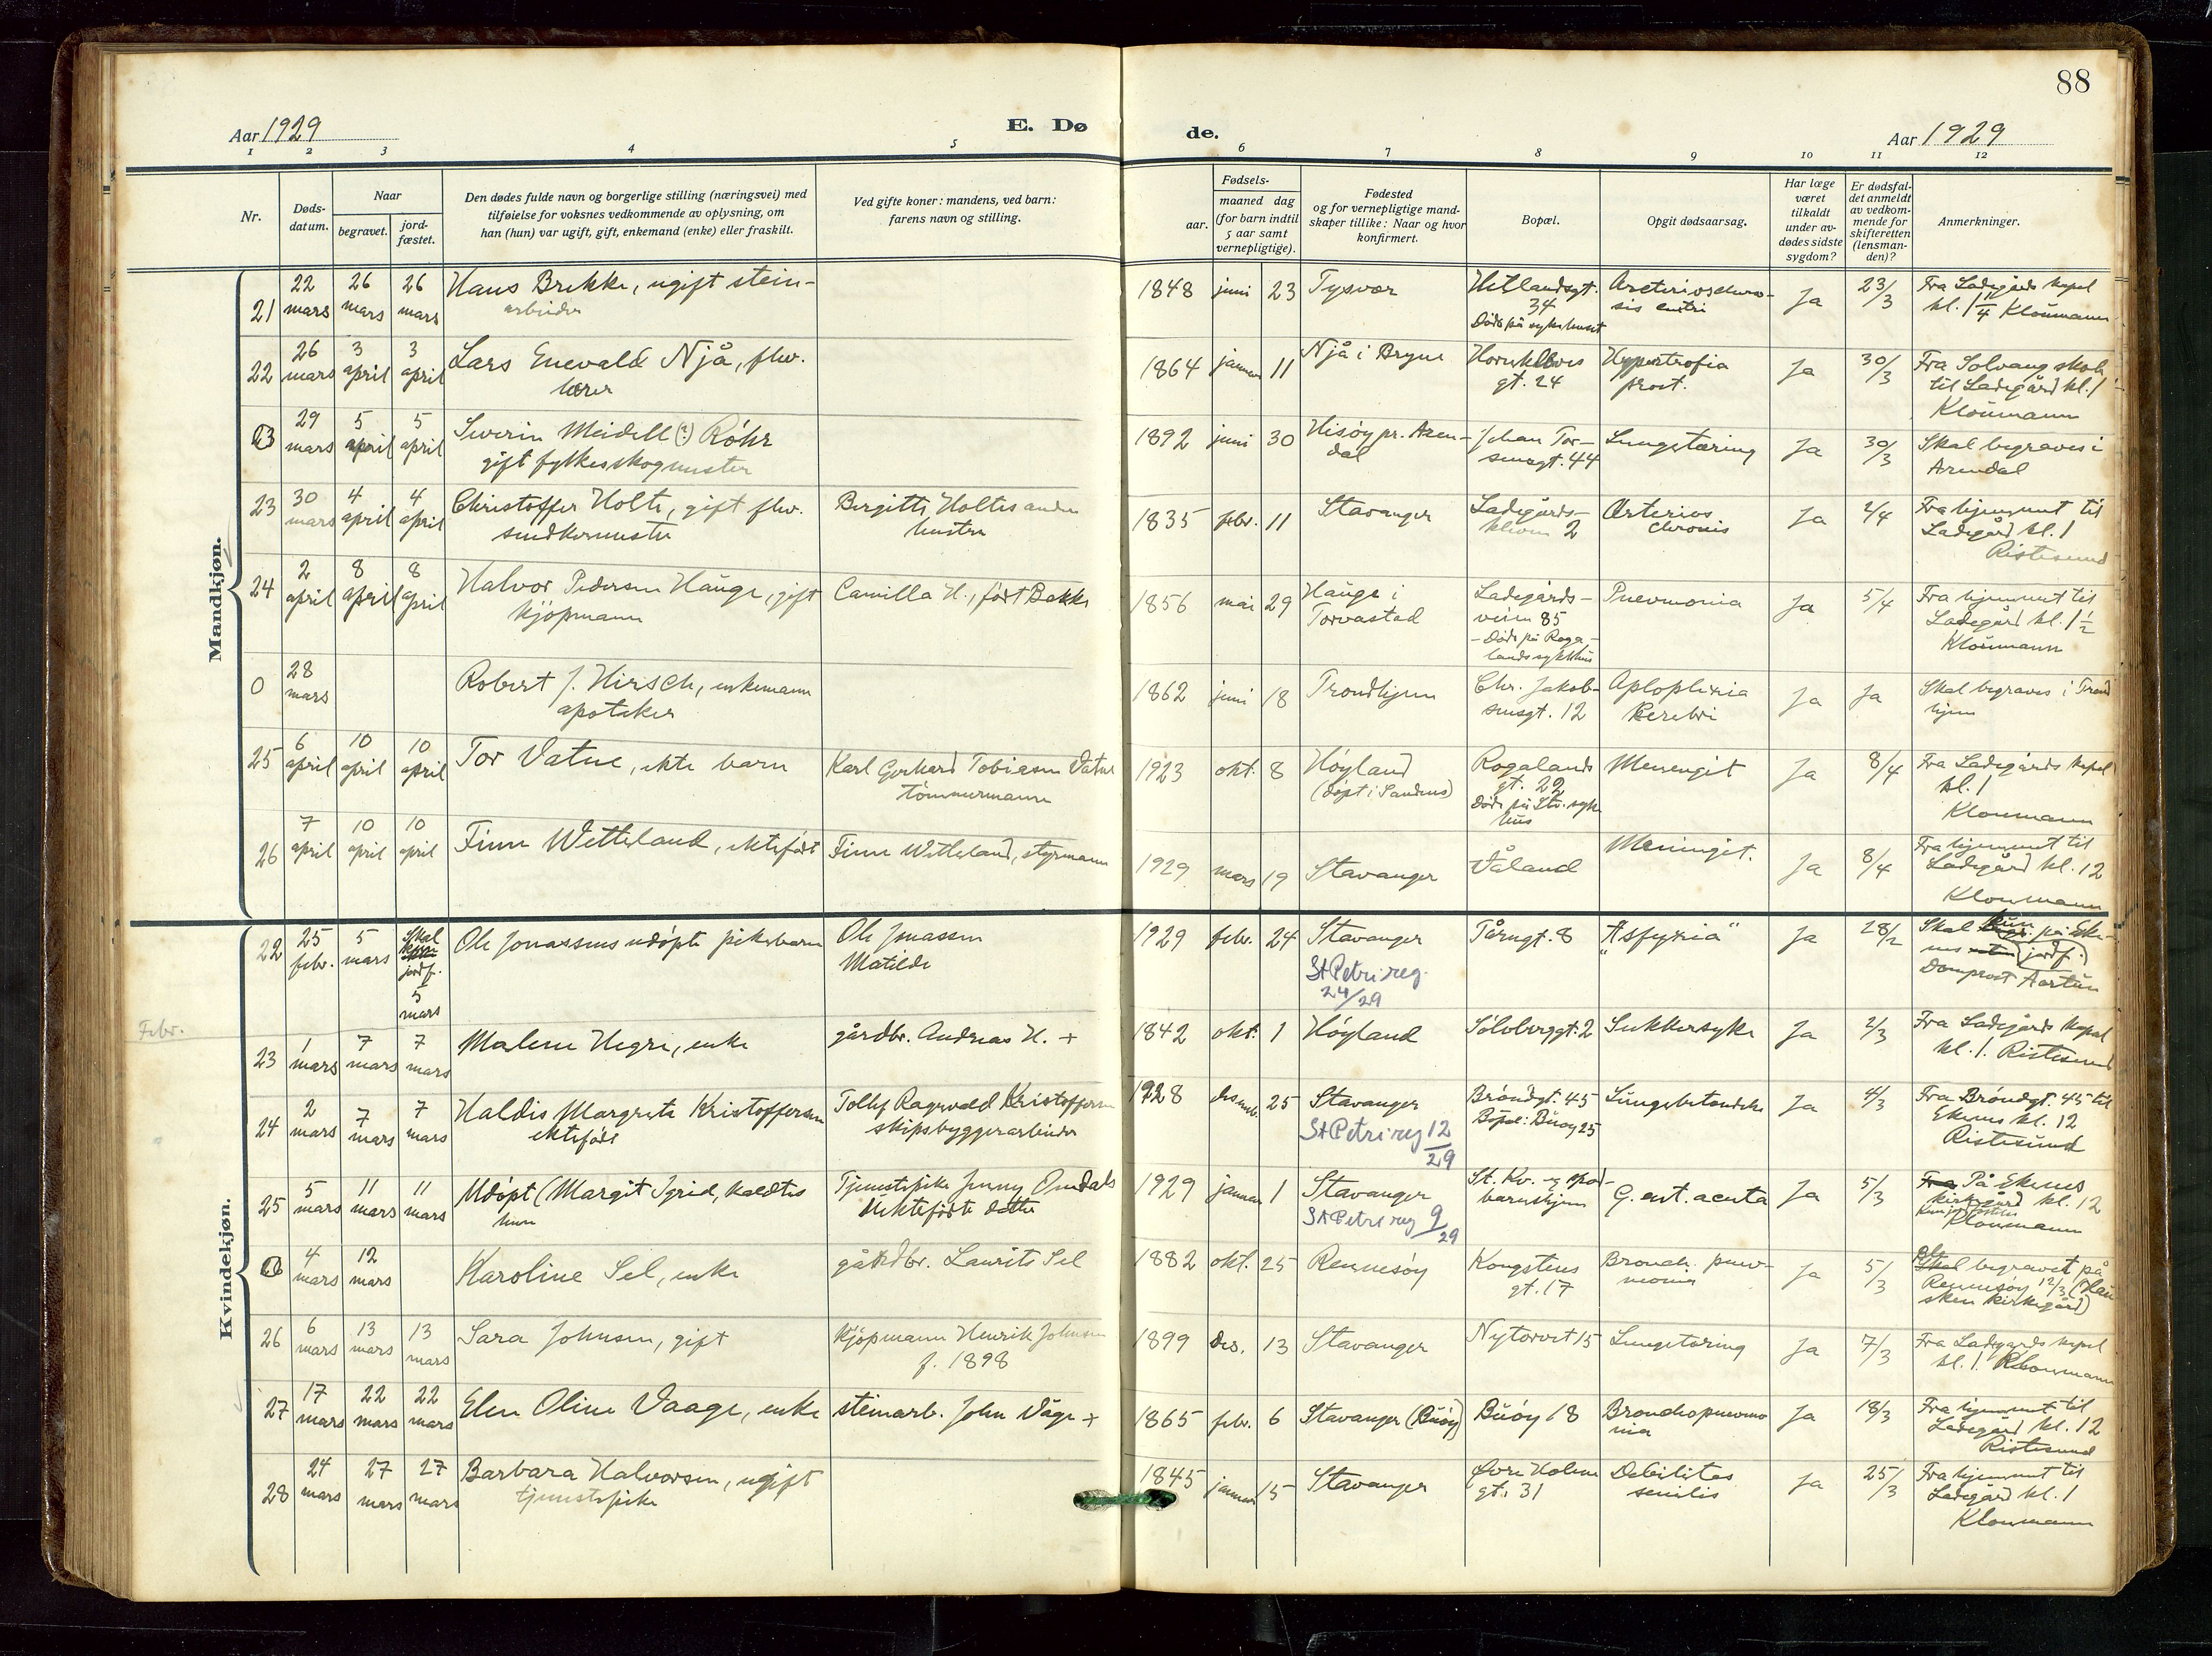 88
Aar 1929
E. Dø
de.
Aar 1929
1 2 3 4 5 6 7 8 9 10 11 12
Nr.
Døds-
datum.
Naar
begravet.
jord-
fæstet.
Den dødes fulde navn og borgerlige stilling (næringsvei) med
tilføielse for voksnes vedkommende av oplysning, om
han (hun) var ugift, gift, enkemand (enke) eller fraskilt.
Ved gifte koner: mandens, ved barn:
farens navn og stilling.
Fødsels-
aar.
maaned dag
(for barn indtil
5 aar samt
vernepligtige).
Fødested
og for vernepligtige mand-
skaper tillike: Naar og hvor
konfirmert.
Bopæl.
Opgit dødsaarsag.
Har læge
været
tilkaldt
under av-
dødes sidste
sygdom?
Er dødsfal-
det anmeldt
av vedkom-
mende for
skifteretten
(lensman-
den)?
Anmerkninger.
Mandkjøn.
21 22 mars 26 mars 26 mars Hans Brekke, ugift stein-
arbeider
1848 juni 23 Tysvær Hetlandsgt.
34
Døde på sykehuset
Arterioschero-
sis
Ja 23/3 Fra Ladegårds kapel
kl. 1 1/4 Kloumann
22 26 mars 3 april 3 april Lars Enevald Njå, fhv.
lærer
1864 januar 11 Njå i Bryne Hornkloves
gt. 24
Hypertrofia
prost.
Ja 30/3 Fra Solvang skole
til Ladegård kl. 1
Kloumann
29 mars 5 april 5 april Severin Meidell (?) Röhr
gift fylkesskogmester
1892 juni 30 Hisöy pr. Aren-
dal
Johan Tor-
sensgt. 44
Lungetæring Ja 30/3 Skal begraves i
Arendal
23 30 mars 4 april 4 april Christoffer Holte, gift fhv.
Birgitte Holtes anden
hustru
1835 febr. 11 Stavanger Ladegårds-
kleven 2
Arterios
chronis
Ja 2/4 Fra hjemmet til
Ladegård kl. 1
Ristesund
24 2 april 8 april 8 april Halvor Pedersen Hauge, gift
kjöpmann
Camilla H., født Bakke
1856 mai 29 Hauge i
Torvastad
Ladegårds-
veien 85
- Døde på Roga-
lands sykehus
Pneumonia Ja 5/4 Fra hjemmet til
Ladegård kl. 1 1/2
Kloumann
0 28 mars Robert J. Hirsch, enkemann
apoteker
1862 juni 18 Trondhjem Chr. Jakob-
sensgt. 12
Aploplexia
Cerebri
Ja Ja Skal begraves i Trond
hjem
25 6 april 10 april 10 april Tor Vatne, ekte barn
Karl Gerhard Tobiasen Vatne
tömmermann
1923 okt. 8 Höyland
(döpt i Sandnes)
Rogalands
gt. 22
Døde på Stv. syke
hus
Menengit Ja 8/4 Fra Ladegårds kapel
kl. 1
Kloumann
26 7 april 10 april 10 april Finn Wetteland, ektefødt
Finn Wetteland, styrmann
1929 mars 19 Stavanger Våland Meningit. Ja 8/4 Fra hjemmet til
Ladegård kl. 12
Kloumann
Kvindekjøn.
22 25 febr. 5 mars Skal
jordf.
5
mars
Ole Jonassens udöpte pikebarn
Ole Jonassen
Matilde
1929 febr. 24 Stavanger
St Petri reg.
24/29
Tårngt. 8 "Asfyxia" Ja 28/2 Skal kun på Eke-
nes (jordf.)
Domprost Aartun
Febr.
23 1 mars 7 mars 7 mars Malene Hegre, enke
gårdbr. Andreas H. +
1842 okt. 1 Höyland Sölvberggt. 2 Sukkersyke Ja 2/3 Fra Ladegårds kapel
kl. 1. Ristesund
24 2 mars 7 mars 7 mars Haldis Margrete Kristoffersen
ektefödt
Tollef Ragnvald Kristoffersen
skipsbyggerarbeider
1928 desemb. 25 Stavanger
St Petri reg 12/29
Bröndgt. 45
Bopæl: Buöy 25
Lungebetendelse Ja 4/3 Fra Bröndgt. 45 til
Ekenes kl. 12
Ristesund
25 5 mars 11 mars 11 mars Udöpt (Margit Sigrid, kaldtes
hun
Tjenestepike Jenny Omdals
uektefödte datter
1929 januar 1 Stavanger
St Petri reg 9/29
St. Kv. og sped-
barnshjem
G. ent. acuta Ja 5/3 Fra På Ekenes
kirkegård kl. 12
Kloumann
4 mars 12 mars Karoline Sel, enke
gårdbr. Laurits Sel
1882 okt. 25 Rennesöy Kongstens
gt. 17
Bronch. pnev-
monia
Ja 5/3 Ble begravet på
Rennesöy 12/3 (Hau
sken kirkegård)
26 6 mars 13 mars 13 mars Sara Johnsen, gift
kjöpmann Henrik Johnsen
f. 1898
1899 des. 13 Stavanger Nytorvet 15 Lungetæring Ja 7/3 Fra Ladegårds kapel
kl. 1. Kloumann
27 17 mars 22 mars 22 mars Elen Oline Vaage, enke
steinarb. John Våge +
1865 febr. 6 Stavanger (Buöy) Buöy 18 Bronchopneumo
nia
Ja 18/3 Fra hjemmet til
Ladegård kl. 12
Ristesund
28 24 mars 27 mars 27 mars Barbara Halvorsen, ugift
tjenestepike
1845 januar 15 Stavanger Øvre Holme
gt. 31
Debilitas
senilis
Ja 25/3 Fra hjemmet til
Ladegård kl. 1
Kloumann